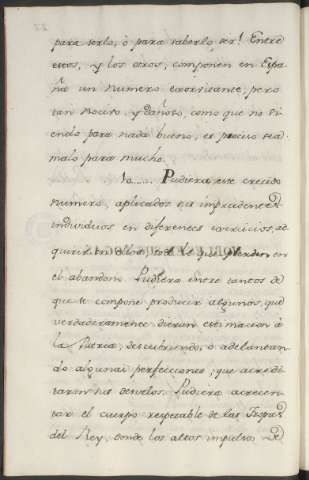 para serlo, ò para saberlo, ser! Entre
estos, y los otros, componen en Espa-
ña un numero exorvitante; pero
tan nocivo, y dañoso, como que no si-
endo para nada bueno, es preciso sea
malo para mucho.
10..... Pudiera este crecido
numero, aplicados sus
individuos en diferentes exercicios, ad-
quirir en ellos, todo lo que pierden en
el abandono. Pudiera entre tantos de
que se compone producir algunos, que
verdaderamente dieran estimacion á
la Patria, descubriendo, ò adelantan-
do algunas perfecciones, que acredi-
taran sus desvelos. Pudiera acrecen-
tar el cuerpo respetable de las Tropas
del Rey, donde los altos impulsos de